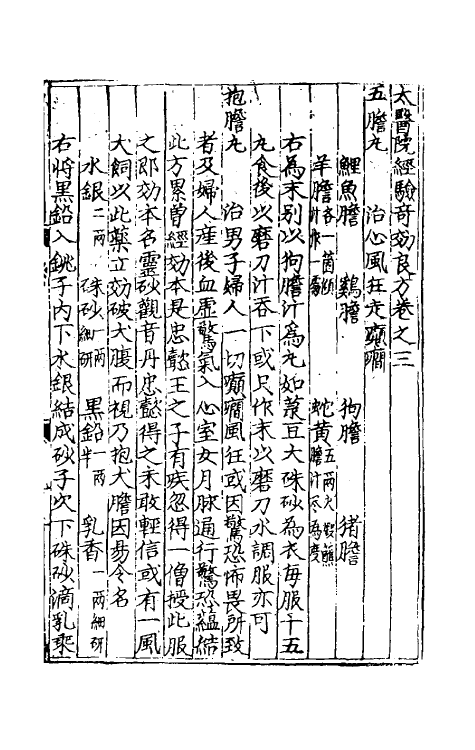 太醫院經驗奇効良方卷之三
五膽丸　治心風狂走癲癇
鯉魚膽　鷄膽　狗膽　猪膽
羊膽各一箇傾汁作一處　蛇黄五兩火煅蘸膽汁尽為度
右為末別以狗膽汁爲丸如菉豆大硃砂為衣每服十五
丸食後以磨刀汁吞下或只作末以磨刀水調服亦可
抱膽丸　治男子婦人一切癲癇風狂或因驚恐怖畏所致
者及婦人産後血虛驚氣入心室女月脉通行驚恐蘊結
此方累曽經効本是忠懿王之子有疾忽得一僧授此服
之即効本名靈砂觀音丹忠懿得之未敢輕信或有一風
犬飼以此藥立効破犬腹而視乃抱犬膽因易今名
水銀二兩　硃砂一兩細研　黒鉛一兩半　乳香一兩細研
右將黒鉛入銚子內下水銀結成砂子次下硃砂滴乳乘